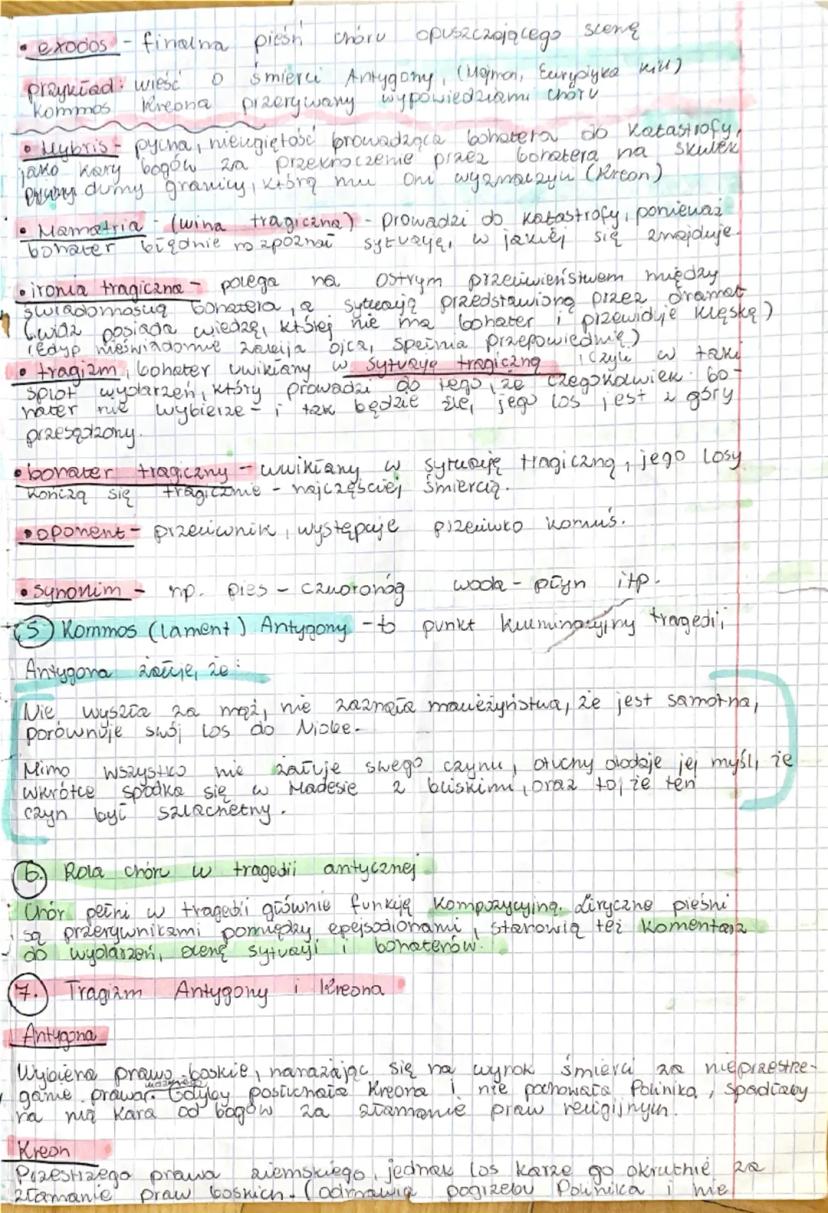 • exodos - finalna pieśń chóru opuszczającego scenę
przykład: wieść o śmierci Antygony, (Hajmon, Eurydyka kill)
kommos Kreona przerywany wypowiedziami chóru
• Hybris - pycha, nieugiętość prowadząca bohatera do katastrofy,
jako kary bogów za przekroczenie przez bohatera na skutek
dumy granicy, którą mu oni wyznaczyli (Kreon)
• Hamatria - (wina tragiczna) - prowadzi do katastrofy, ponieważ
bohater błędnie rozpoznał sytuację, w jakiej się znajduje.
• ironia tragiczna - polega na ostrym przeciwieństwem między
świadomością bohatera, a sytuacją przedstawioną przez dramat
(widz posiada wiedzę, której nie ma bohater i przewiduje klęskę)
(Edyp nieświadomie zabija ojca, spełnia przepowiednię)
• tragizm, bohater uwikłany w sytuację tragiczną, czyli w taki
splot wydarzeń, który prowadzi do tego, że czegokolwiek bo-
hater nie wybierze - i tak będzie źle, jego los jest z góry
przesądzony.
• bohater tragiczny - uwikłany w sytuację tragiczną, jego losy
kończą się tragicznie - najczęściej śmiercią.
• oponent - przeciwnik, występuje przeciwko komuś.
• synonim - np. pies - czworonóg woda - płyn itp.
5 Kommos (lament) Antygony - to punkt kulminacyjny tragedii
Antygona żałuje, że:
Nie wyszła za mąż, nie zaznała małeżyństwa, że jest samotna,
porównuje swój los do Niobe.
Mimo wszystko nie żałuje swego czynu, otuchy dodaje jej myśl, że
wkrótce spotka się w Hadesie z bliskimi, oraz to, że ten
czyn był szlachetny.
6. Rola chóru w tragedii antycznej
Chór pełni w tragedii głównie funkcję kompozycyjną. Liryczne pieśni
są przerywnikami pomiędzy epejsodionami, stanowią też komentarz
do wydarzeń, ocenę sytuacji i bohaterów.
7. Tragizm Antygony i Kreona
Antygona
Wybiera prawo boskie, narażając się na wyrok śmierci za nieprzestrze-
ganie prawa. Gdyby posłuchała Kreona i nie pochowała Polinika, spadłaby
na nią kara od bogów za złamanie praw religijnych.
Kreon
Przestrzega prawa ziemskiego, jednak los karze go okrutnie za
złamanie praw boskich. (odmawia pogrzebu Polinika i nie